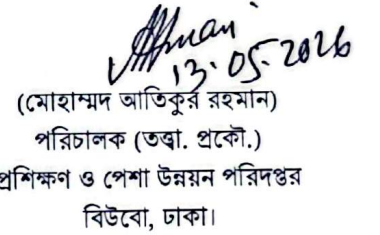 13.05.2026
(মোহাম্মদ আতিকুর রহমান)
পরিচালক (তত্ত্বা. প্রকৌ.)
প্রশিক্ষণ ও পেশা উন্নয়ন পরিদপ্তর
বিউবো, ঢাকা।